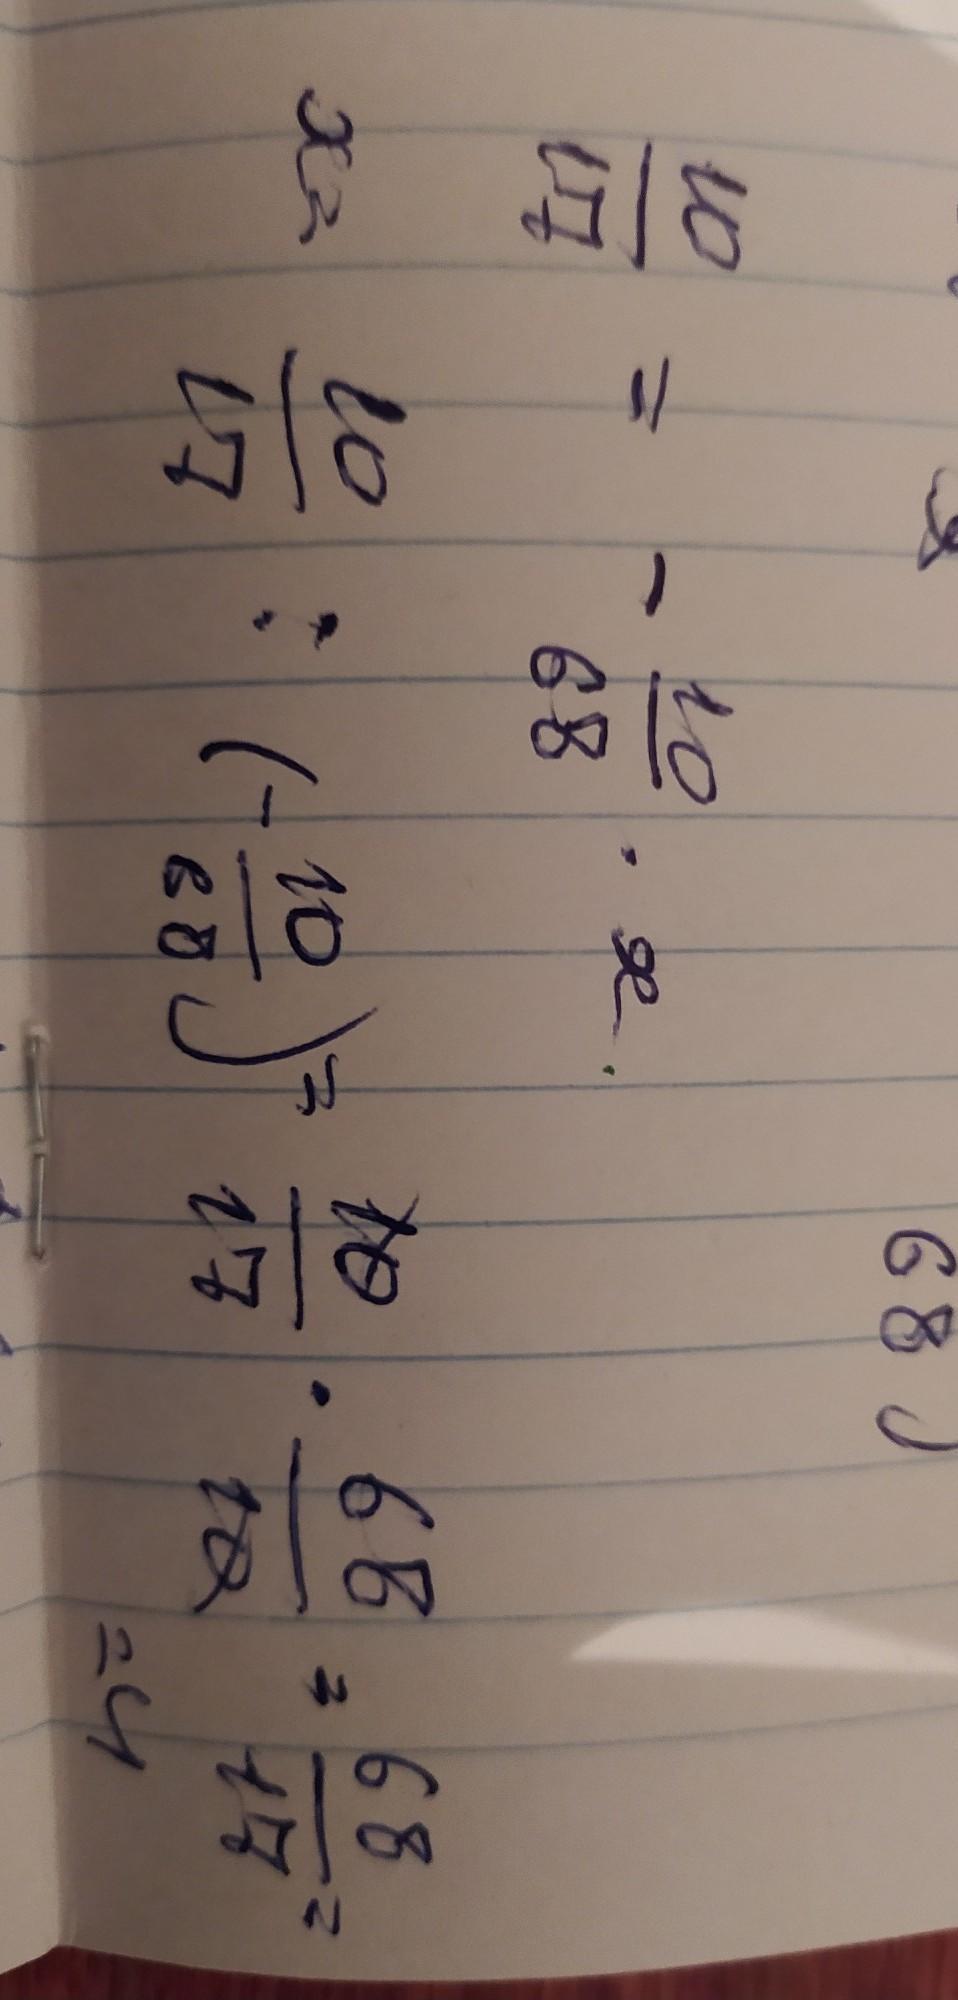 68)
10/17 = - 10/68 · x
x = 10/17 : (- 10/68) = 10/17 · 68/10 = 68/17 =
= 4